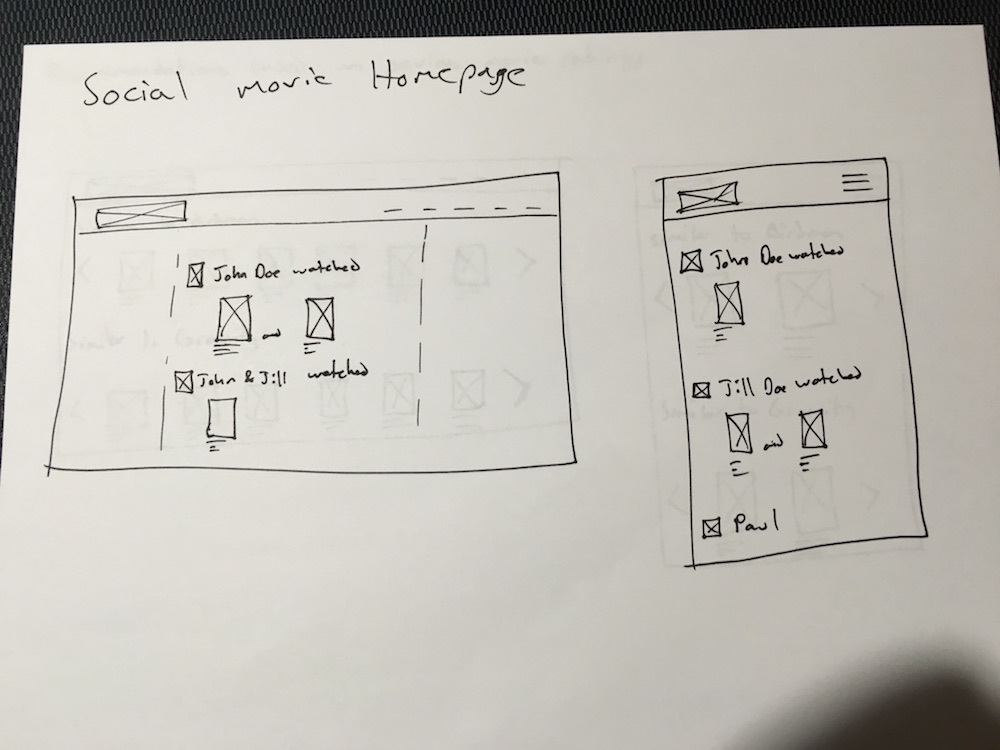 Social movie Homepage
John Doe watched
and
John & Jill watched
John Doe watched
Jill Doe watched
and
Paul